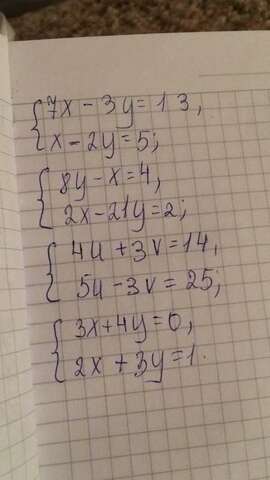 7x - 3y = 13,
x - 2y = 5;
8y - x = 4,
2x - 21y = 2;
4u + 3v = 14,
5u - 3v = 25;
3x + 4y = 0,
2x + 3y = 1.